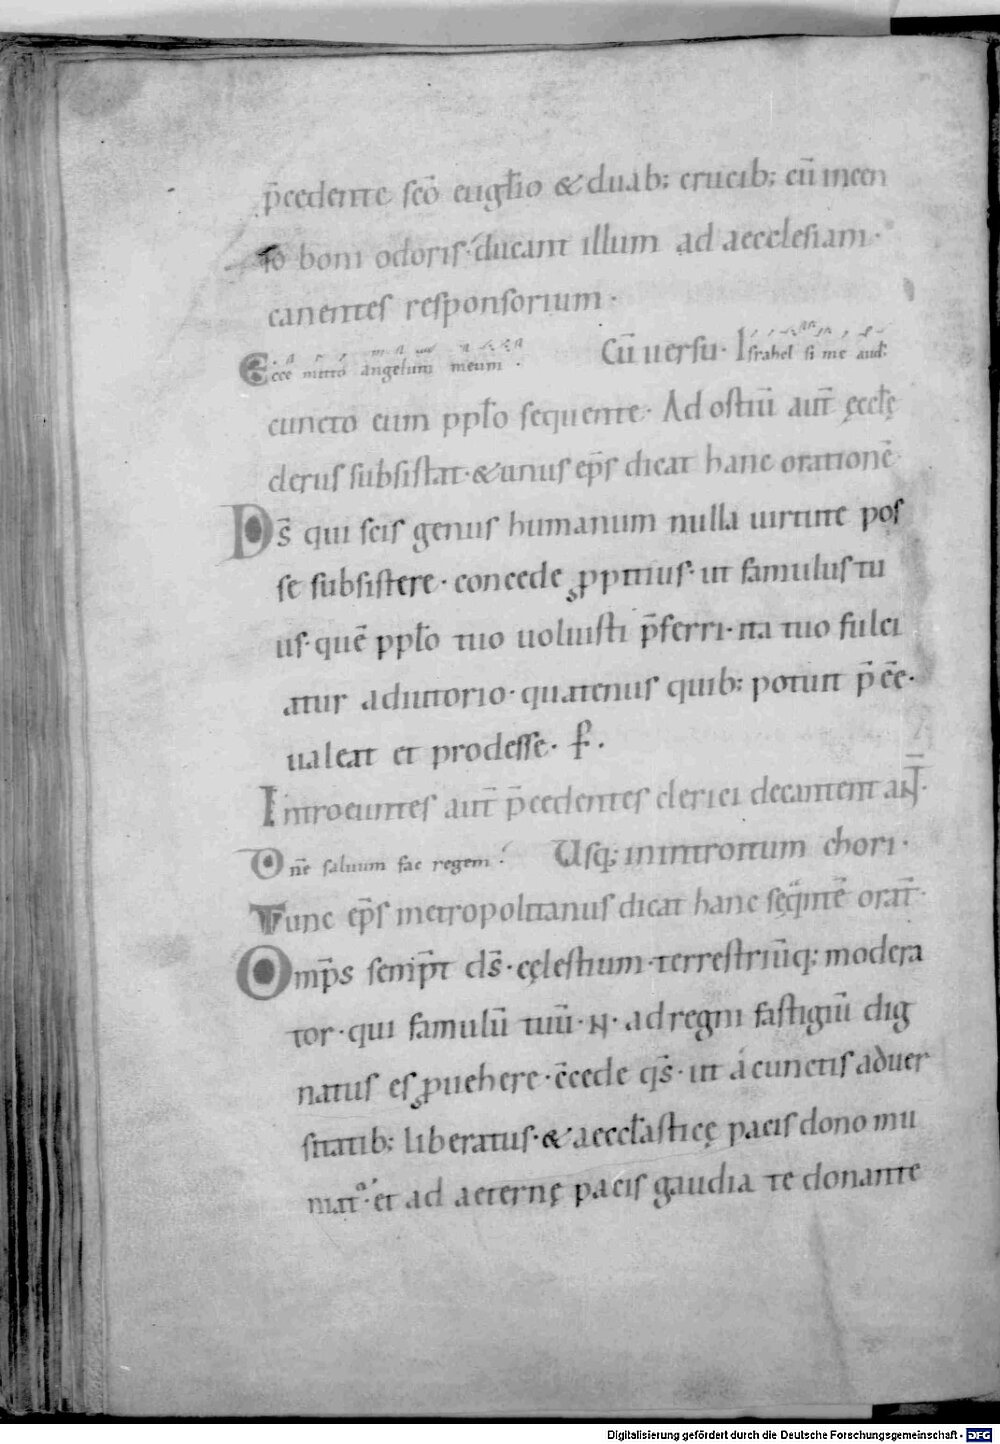 p̄cedente sc̄o eugl̄io & duab; crucib; cū incen
so boni odoris· ducant illum ad aecclesiam·
canentes responsorium·
Ecce mitto angelum meum· Cū uersu· Israhel si me aud̄·
cuncto eum ppl̄o sequente· Ad ostiū aut̄ ęccl̄ę
clerus subsistat· & unus ep̄s dicat hanc orationē·
Ds̄ qui scis genus humanum nulla uirtute pos
se subsistere· concede ꝓpitius· ut famulus tu
us· quē ppl̄o tuo uoluisti p̄ferri· ita tuo fulci
atur adiutorio· quatenus quib; potuit p̄ee͞·
ualeat et prodesse· P̄·
Introeuntes aut̄ p̄cedentes clerici decantent aN̄·
Dn̄e saluum fac regem· Usq; inintroitum chori·
Tunc ep̄s metropolitanus dicat hanc seq̄ntē orat̄·
Omp̄s semp̄t ds̄· cęlestium· terrestriūq; modera
tor· qui famulū tuū· N· ad regni fastigiū dig
natus es ꝓuehere· c̄cede qs̄· ut a cunctis aduer
sitatib; liberatus· & aeccl̄asticę pacis dono mu
niat᷒· et ad aeternę pacis gaudia te donante
Digitalisierung gefördert durch die Deutsche Forschungsgemeinschaft - DFG